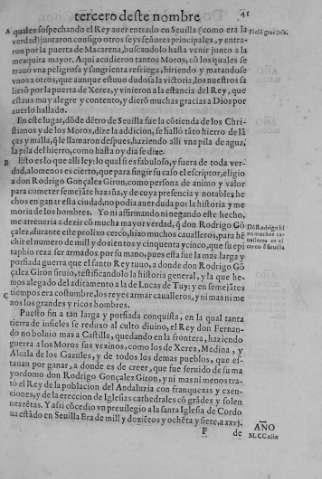 tercero deste nombre 41
A quales sospechando el Rey auer entrado en Seuilla (como era la
verdad) juntaron consigo otros seys señores principales, y entra-
ron por la puerta de Macarena, buscandolo hasta venir junto a la
mezquita mayor. Aqui acudieron tantos Moros, cõ los quales se
trauò vna peligrosa y sangrienta refriega, hiriendo, y matandose
vnos a otros, que aunque estuuo dudosa la victoria, los nuestros sa
lieron por la puerta de Xerez, y vinieron a la estancia del Rey, que
estaua muy alegre y contento, y dierõ muchas gracias a Dios por
auerlo hallado.
En este lugar, dõde dẽtro de Seuilla fue la cõtienda de los Chri-
stianos y de los Moros, dize la addicion, se hallò tãto hierro de lã
ças y malla, q̃ le llamaron despues, haziendo alli vna pila de agua,
la pila del hierro, como hasta oy dia se dize.
B Esto es lo que alli ley: lo qual si es fabuloso, y fuera de toda ver-
dad, a lo menos es cierto, que para fingir su caso el escriptor, eligio
a don Rodrigo Gonçalez Giron, como persona de animo y valor
para cometer semejãte hazaña, y de cuya presencia y notables he
chos en ganar esta ciudad, no podia auer duda por la historia y me
moria de los hombres. Yo ni affirmando ni negando este hecho,
me atreuerìa a dezir cõ mucha mayor verdad, q̃ don Rodrigo Gõ
çalez, durante este prolixo cerco, hizo muchos caualleros, para hẽ
chir el numero de mill y dosientos y cinquenta y cinco, que su epi
taphio reza ser armados por su mano, pues esta fue la mas larga y
porfiada guerra que el santo Rey tuuo, a donde don Rodrigo Gõ
çalez Giron siruio, testificandolo la historia general, y la que he-
mos alegado del aditamento a la de Lucas de Tuy: y en semejãtes
C tiempos era costumbre, los reyes armar caualleros, y ni mas ni me
nos los grandes y ricos hombres.
Puesto fin a tan larga y porfiada conquista, en la qual tanta
tierra de infieles se reduxo al culto diuino, el Rey don Fernan-
do no boluio mas a Castilla, quedando en la frontera, haziendo
guerra a los Moros sus vezinos, como los de Xerez, Medina, y
Alcala de los Gazules, y de todos los demas pueblos, que es-
tauan por ganar, a donde es de creer, que fue seruido de su ma
yordomo don Rodrigo Gonçalez Giron, y ni mas ni menos tra-
tò el Rey de la poblacion del Andaluzia con franquezas y exen-
ciones, y de la ereccion de Iglesias cathedrales cõ grãdes y solen
nes rẽtas. Y assi cõcedio vn preuilegio a la santa Iglesia de Cordo
ua estãdo en Seuilla Era de mill y doziẽtos y ochẽta y siete, a xxvj.
F de
AÑO
M.CCxlix